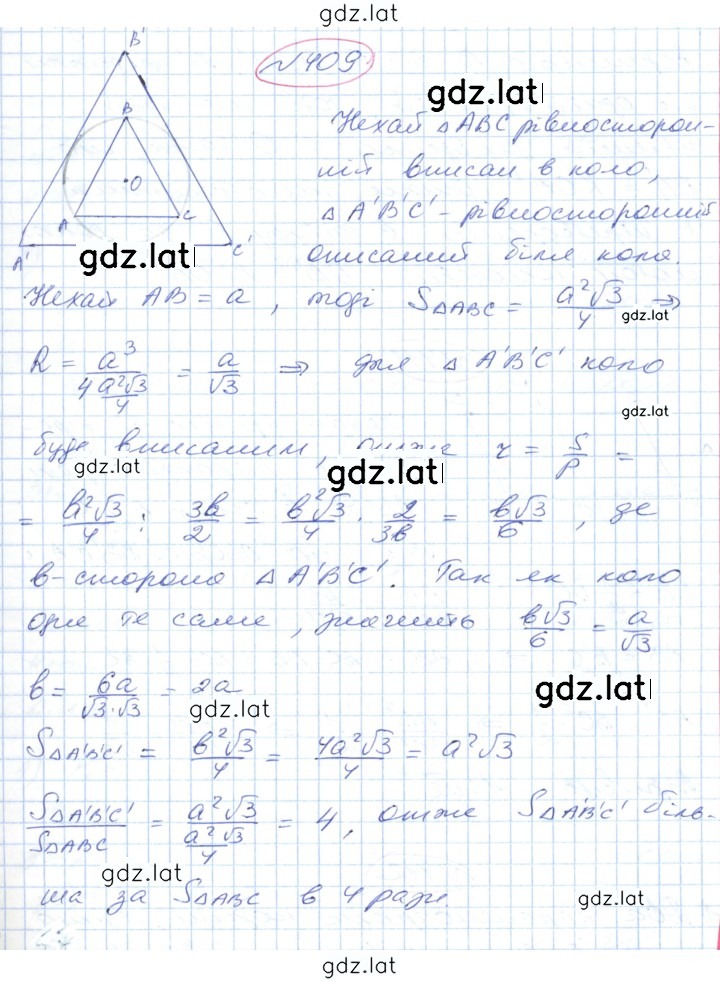 gdz.lat
№409
gdz.lat
Нехай △ABC рівносторон-
ній вписан в коло,
△A'B'C' - рівносторонній
описаний біля кола.
B'
B
O
A
C
A'
C'
gdz.lat
Нехай AB = a, тоді S△ABC = a²√3/4 ⇒
gdz.lat
R = a³/(4 a²√3/4) = a/√3 ⇒ для △A'B'C' коло
gdz.lat
буде вписаним, r = S/p =
gdz.lat
gdz.lat
= b²√3/4 : 3b/2 = b²√3/4 · 2/3b = b√3/6, де
b-сторона △A'B'C'. Так як коло
одне те саме, значить b√3/6 = a/√3
gdz.lat
b = 6a/(√3·√3) = 2a
gdz.lat
S△A'B'C' = b²√3/4 = 4a²√3/4 = a²√3
S△A'B'C'/S△ABC = a²√3/(a²√3/4) = 4, отже S△A'B'C' біль-
gdz.lat
ша за S△ABC в 4 рази.
gdz.lat
gdz.lat